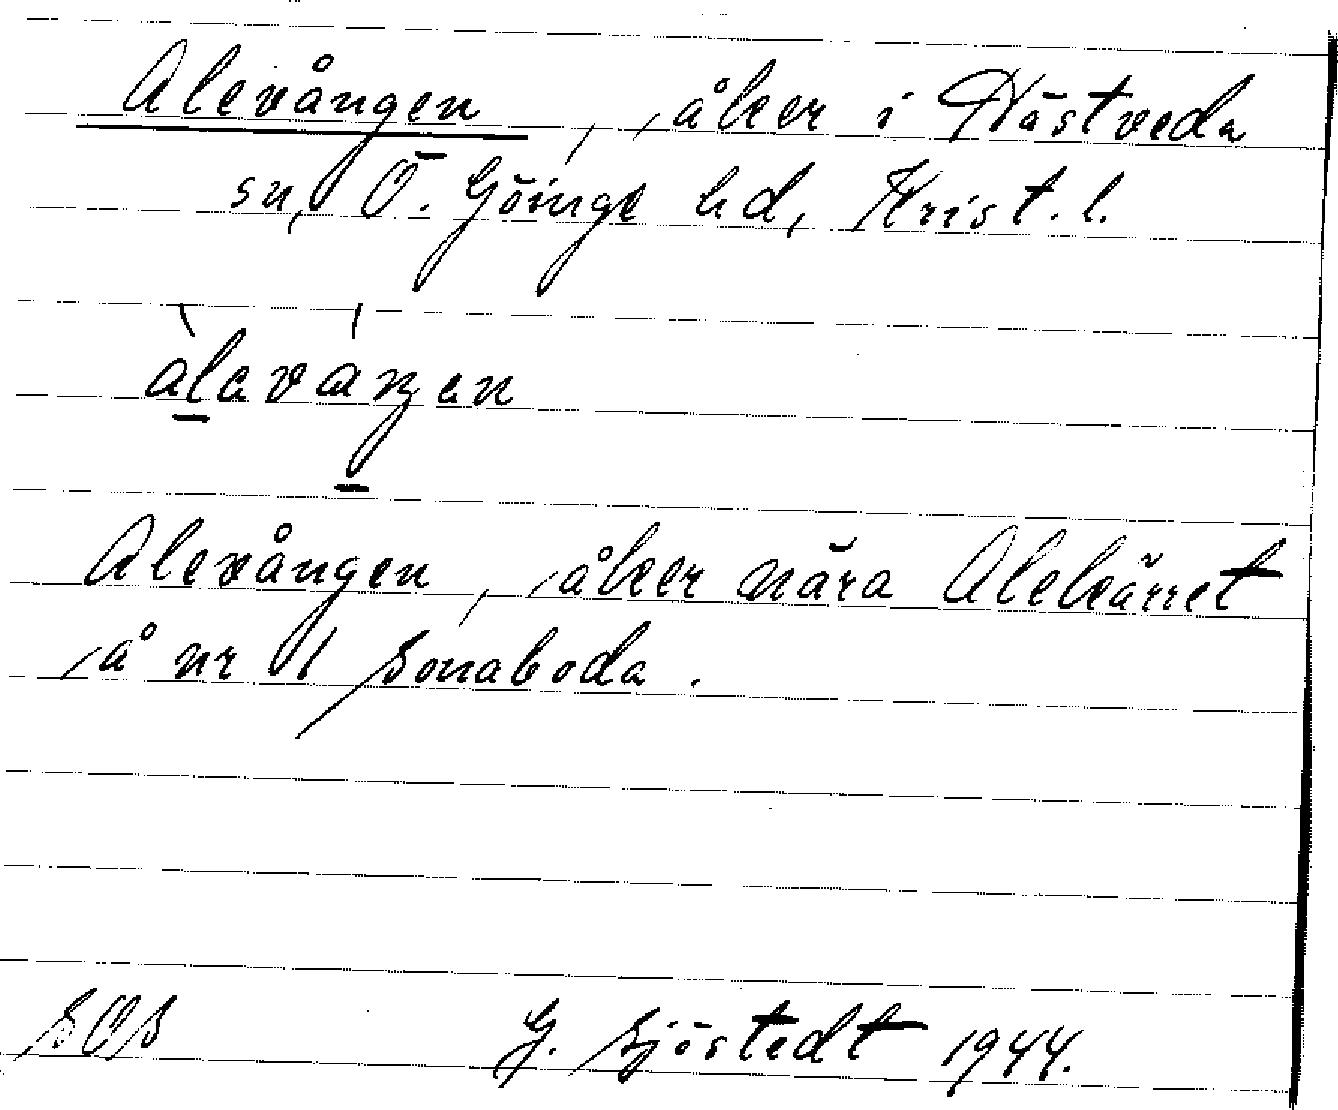 Alevången, åker i Hästveda
sn, Ö. Göinge hd, Krist. l.
àlaváŋan
Alevången, åker nära Alekärret
å nr 1 Sonaboda.
SOS G. Sjöstedt 1944.